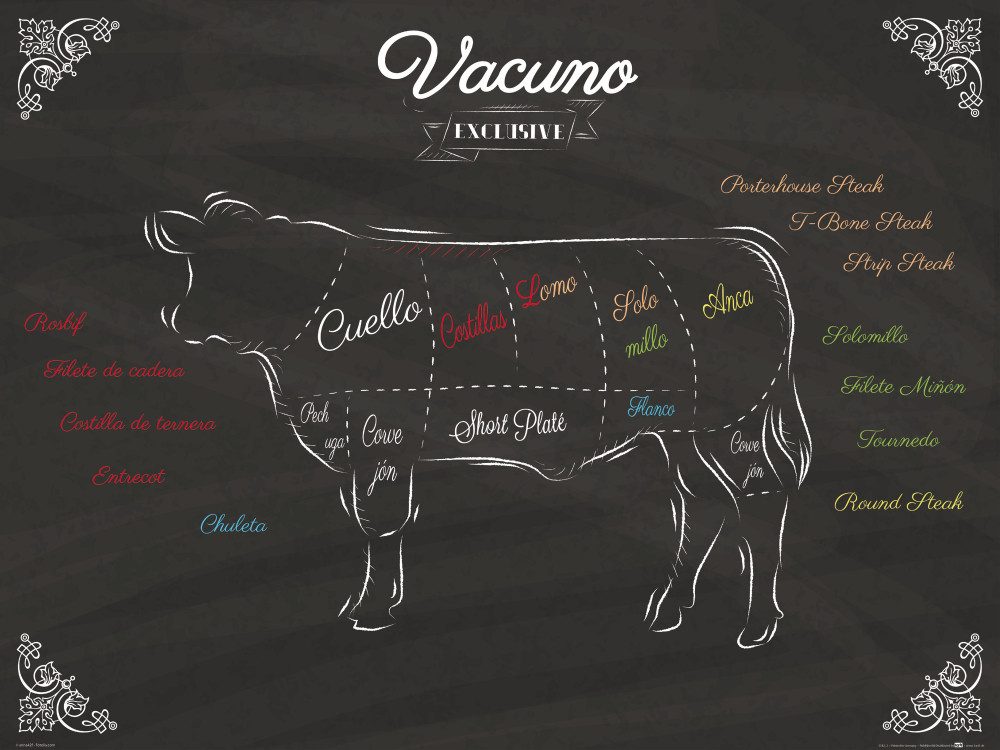 Vacuno
EXCLUSIVE
Porterhouse Steak
T-Bone Steak
Strip Steak
Rosbif
Filete de cadera
Costilla de ternera
Entrecot
Chuleta
Cuello
Costillas
Lomo
Solo
millo
Anca
Pech
uga
Corve
jón
Short Platé
Flanco
Corve
jón
Solomillo
Filete Miñón
Tournedo
Round Steak